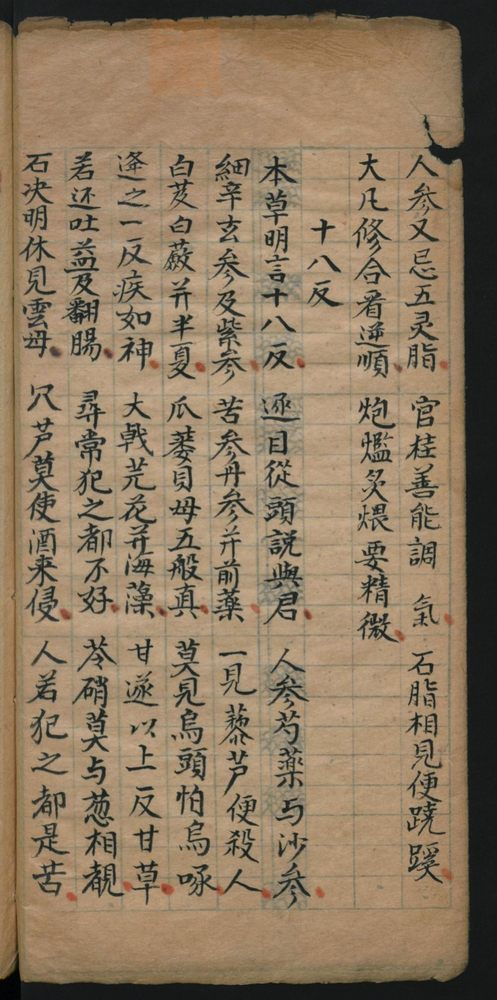 人参又忌五灵脂 官桂善能調氣 石脂相見便跷蹊
大凡修合看逆順 炮爁炙煨要精微
十八反
本草明言十八反 逐日從頭説與君 人参芍薬与沙参
細辛玄参及紫参 苦参丹参并前薬 一見藜芦便殺人
白芨白蔹并半夏 瓜蒌貝母五般真 莫見烏頭怕烏喙
逢之一反疾如神 大戟芫花并海藻 甘遂以上反甘草
若还吐蛊及翻腸 尋常犯之都不好 苓硝莫与葱相覩
石决明休見雲母 穴芦莫使酒来侵 人若犯之都是苦